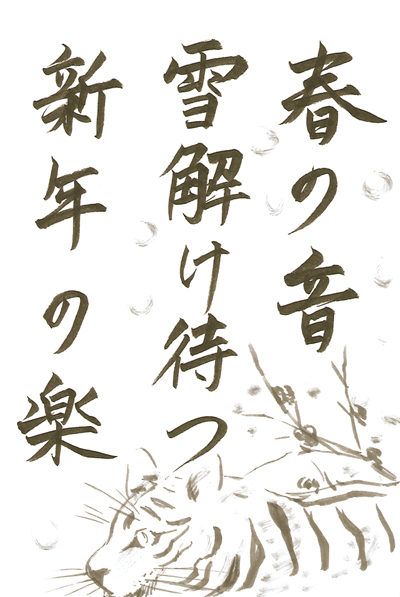 春の音
雪解け待つ
新年の楽